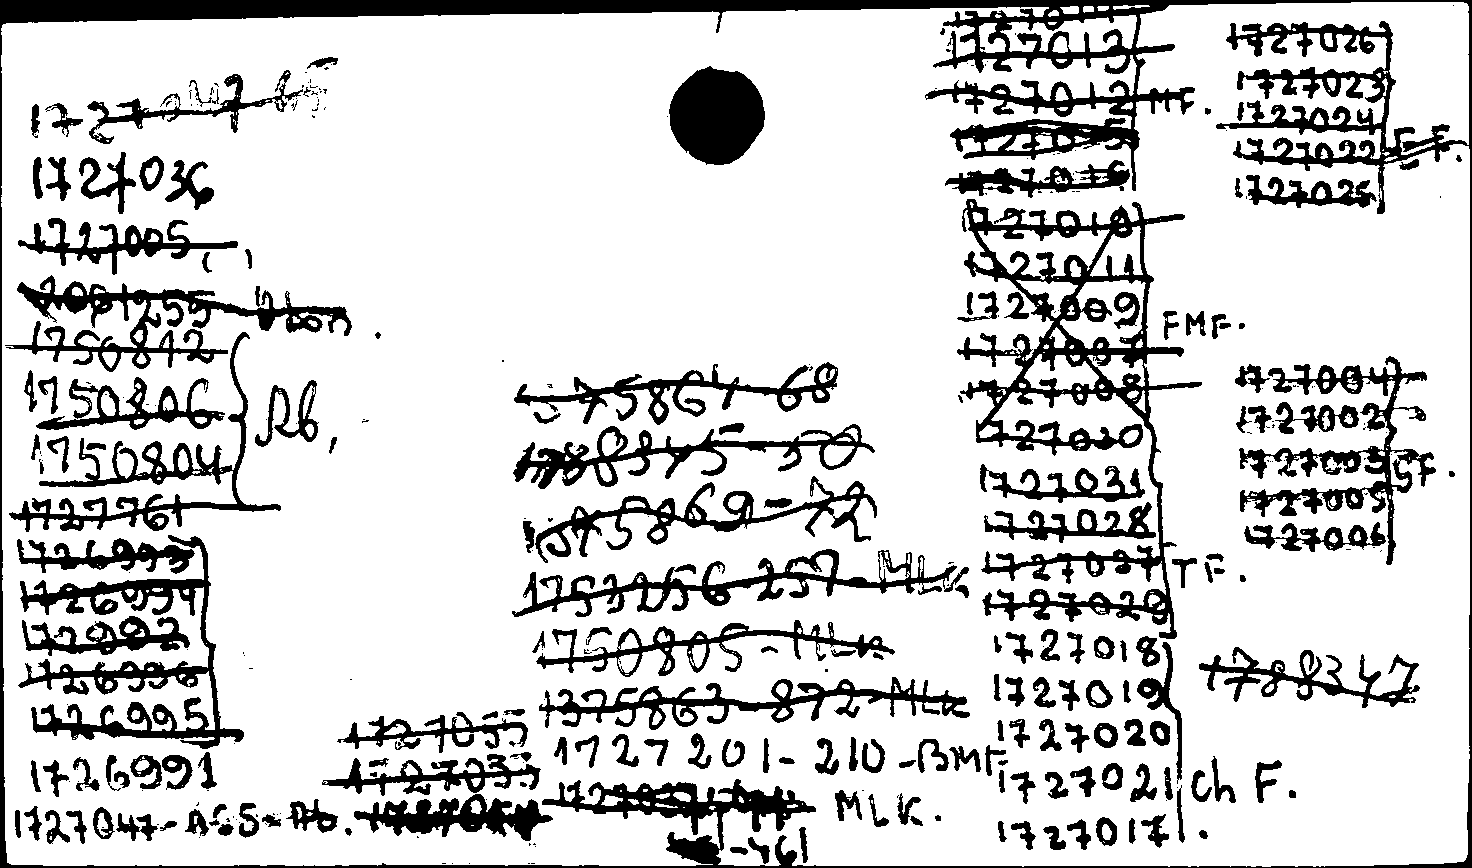 1727036
1727005
1750812
1750806
1750804
Ab,
1727761
1726993
1726994
172992
1726996
1726995
1726991
1727047-AGS-Ab.
1727055
1727033
1375864-68
1788345-50
1375869-72
1753256-257-MLK
1750805-MLK
1375863-872-MLK
1727201-210-BMF
MLK.
-461
1727013
1727012 MF.
1727010
1727011
1727009
FMF.
1727007
1727008
1727030
1727031
1727028
1727027 TF.
1727029
1727018
1727019
1727020
1727021 Ch F.
1727017.
1727026
1727023
1727024
1727022
F.
1727025
1727004
1727002
1727003 SF.
1727005
1727006
1788347